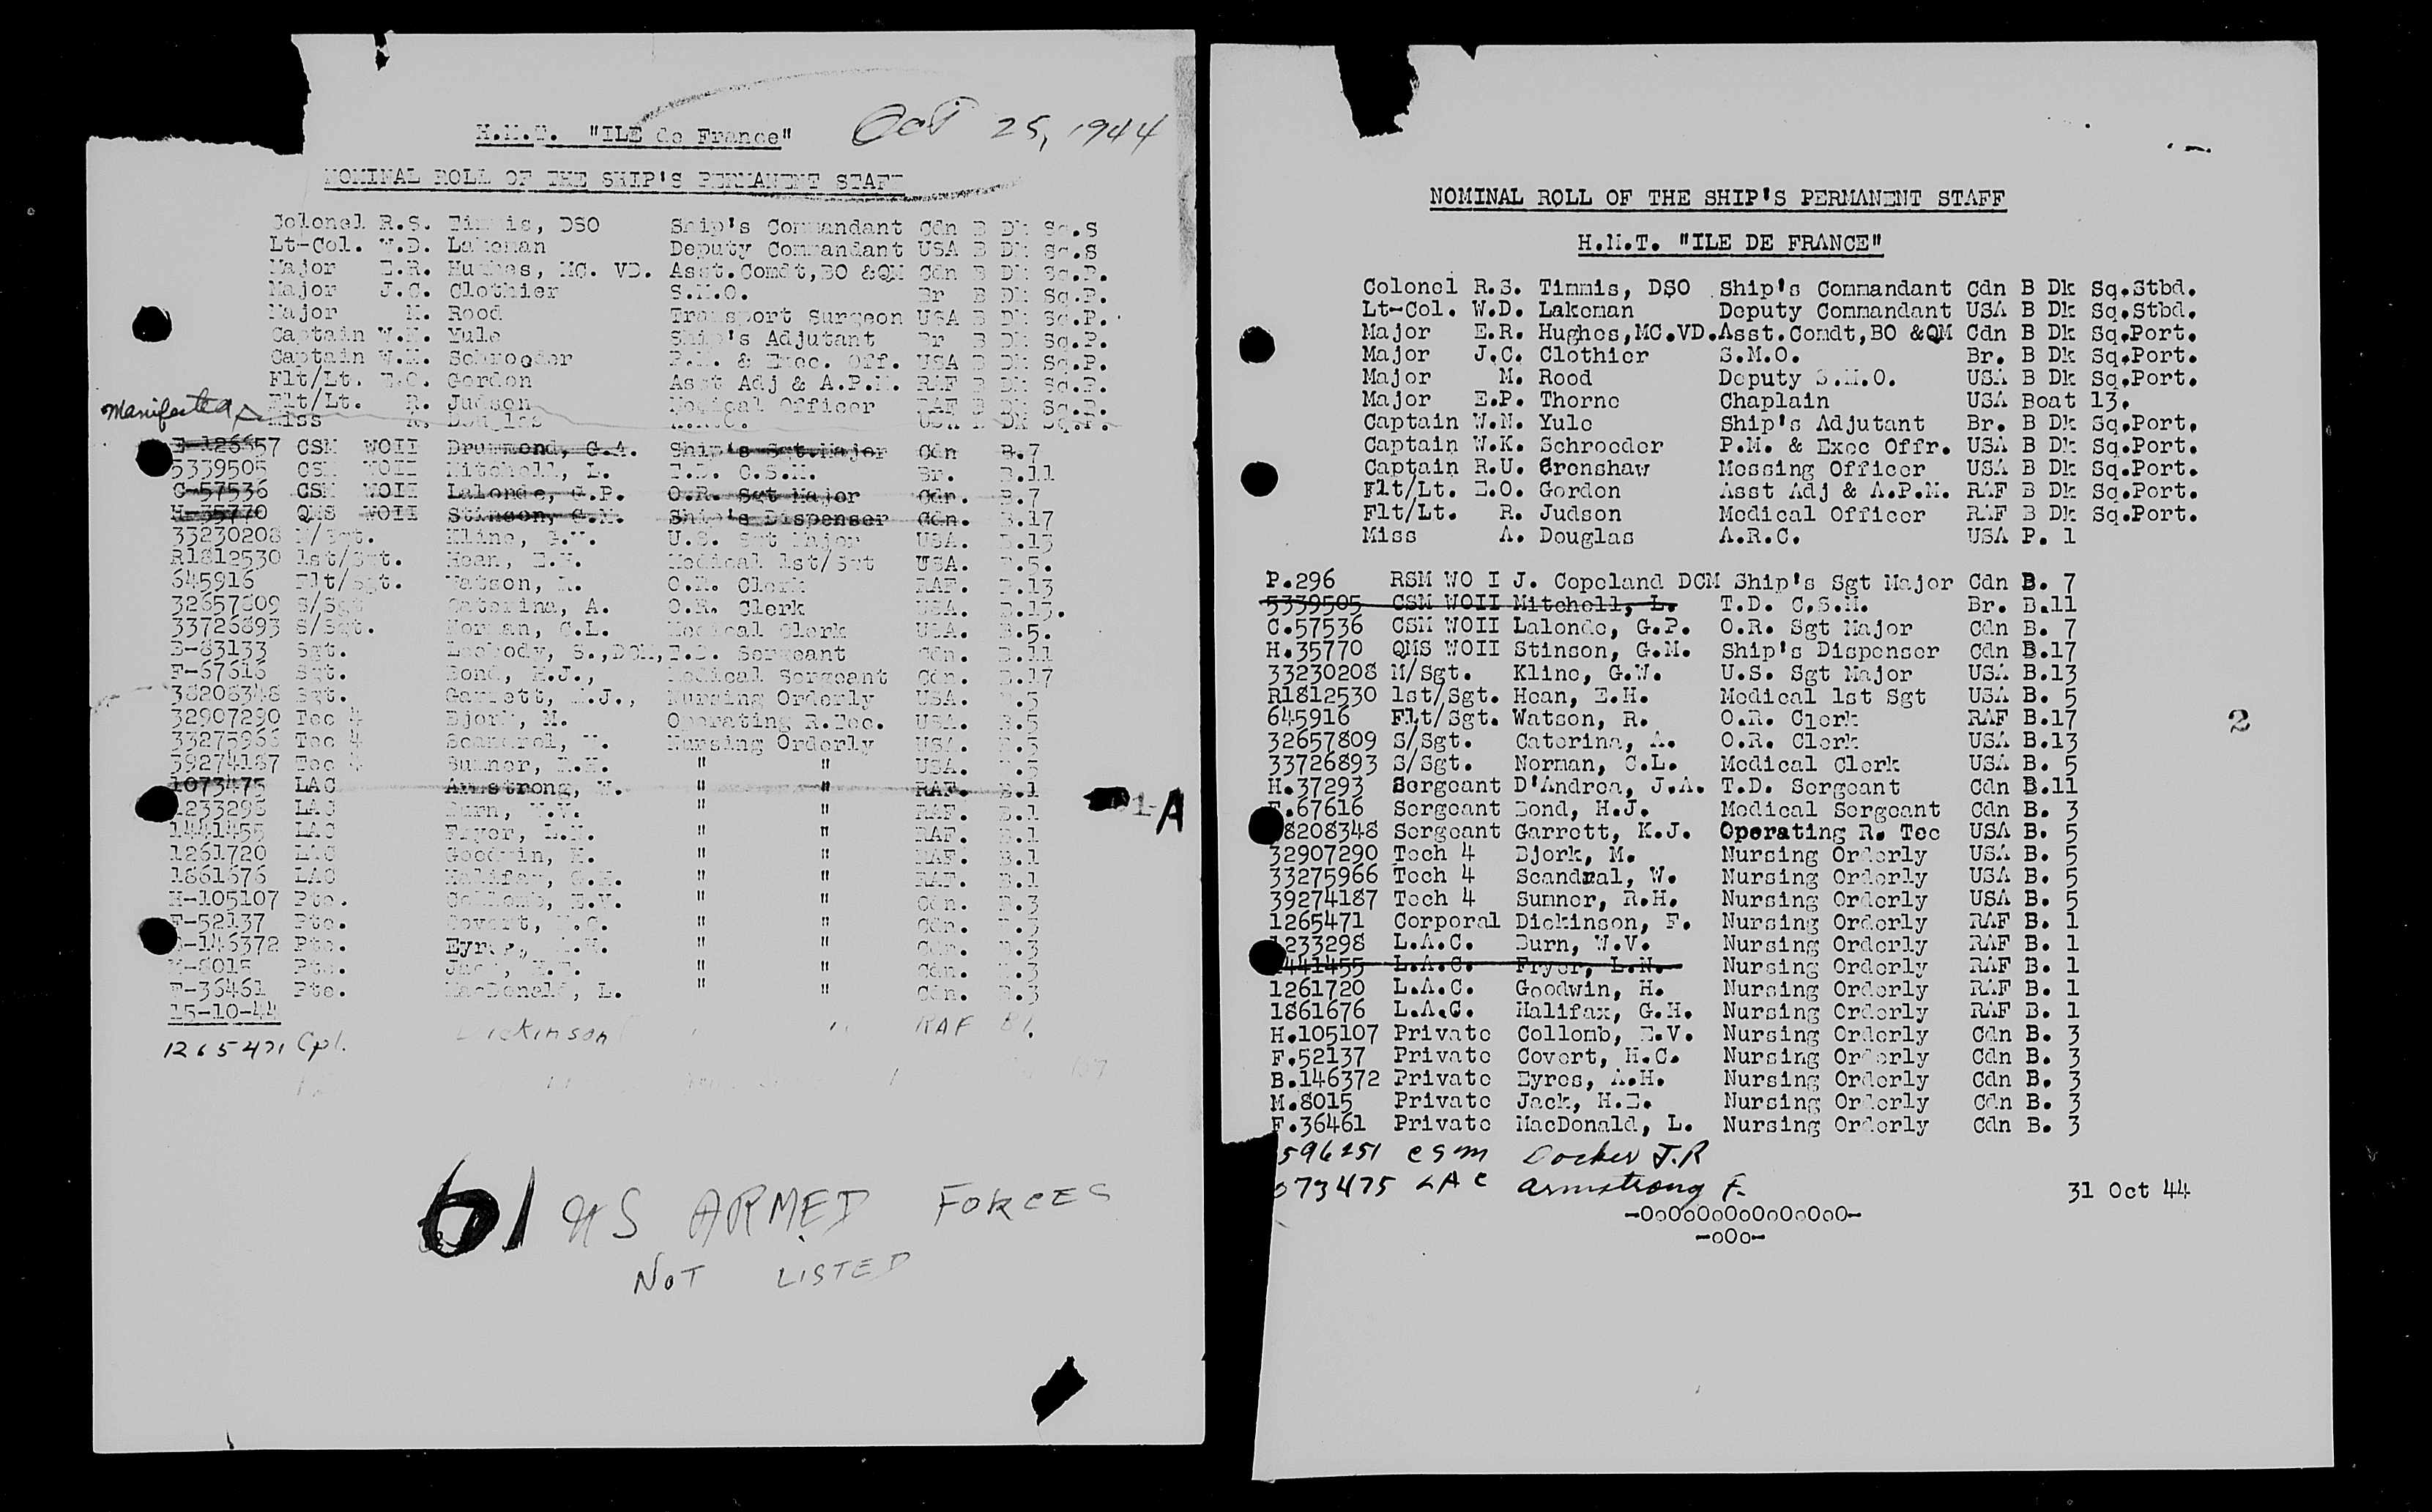 H.M.T. "ILE de France"
Oct 25, 1944
NOMINAL ROLL OF THE SHIP'S PERMANENT STAFF
Colonel R.S. Timmis, DSO Ship's Commandant Cdn B Dk Sq.S
Lt-Col. W.D. Lakeman Deputy Commandant USA B Dk Sq.S
Major E.R. Hughes, MC. VD. Asst.Comdt,BO &QM Cdn B Dk Sq.P.
Major J.C. Clothier S.M.O. Br B Dk Sq.P.
Major M. Rood Transport Surgeon USA B Dk Sq.P.
Captain W.N. Yule Ship's Adjutant Br B Dk Sq.P.
Captain W.K. Schroeder P.M. & Exec. Off. USA B Dk Sq.P.
Flt/Lt. E.O. Gordon Asst Adj & A.P.M. RAF B Dk Sq.P.
Flt/Lt. R. Judson Medical Officer RAF B Dk Sq.P.
Manifested
Miss A. Douglas A.R.C. USA B Dk Sq.P.
126657 CSM WOII Drummond, G.A. Ship's Sgt.Major Cdn B.7
5339505 CSM WOII Mitchell, L. T.D. C.S.M. Br. B.11
C-57536 CSM WOII Lalonde, G.P. O.R. Sgt Major Cdn. B.7
H-35770 QMS WOII Stinson, G.M. Ship's Dispenser Cdn. B.17
33230208 M/Sgt. Kline, G.W. U.S. Sgt Major USA. B.13
R1812530 1st/Sgt. Hean, E.H. Medical 1st/Sgt USA. B.5.
645916 Flt/Sgt. Watson, R. O.R. Clerk RAF. B.13
32657809 S/Sgt Caterina, A. O.R. Clerk USA. B.13.
33726893 S/Sgt. Norman, C.L. Medical Clerk USA. B.5.
B-83133 Sgt. S.,DCM, T.D. Sergeant Cdn. B.11
F-67616 Sgt. Bond, H.J., Medical Sergeant Cdn. B.17
38208348 Sgt. Garrett, K.J., Nursing Orderly USA. B.5
32907290 Tec 4 Bjork, M. Operating R.Tec. USA. B.5
33275966 Tec 4 Scandral, W. Nursing Orderly USA. B.5
39274187 Tec 4 Sumner, R.H. " " USA. B.5
1073475 LAC Armstrong, " " RAF. B.1
1233298 LAC Burn, W.V. " " RAF. B.1
1441455 LAC Fryer, L.N. " " RAF. B.1
1261720 LAC Goodwin, H. " " RAF. B.1
1861676 LAC Halifax, G.H. " " RAF. B.1
H-105107 Pte. Collomb, E.V. " " Cdn. B.3
F-52137 Pte. Covert, H.C. " " Cdn. B.3
-146372 Pte. Eyres, A.H. " " Cdn. B.3
M-8015 Pte. Jack, H.E. " " Cdn. B.3
F-36461 Pte. MacDonald, L. " " Cdn. B.3
15-10-44
1265471 Cpl. Dickinson " " RAF B1.
1-A
61 US ARMED FORCES
NOT LISTED
NOMINAL ROLL OF THE SHIP'S PERMANENT STAFF
H.M.T. "ILE DE FRANCE"
Colonel R.S. Timmis, DSO Ship's Commandant Cdn B Dk Sq.Stbd.
Lt-Col. W.D. Lakeman Deputy Commandant USA B Dk Sq.Stbd.
Major E.R. Hughes,MC.VD.Asst.Comdt,BO &QM Cdn B Dk Sq.Port.
Major J.C. Clothier S.M.O. Br. B Dk Sq.Port.
Major M. Rood Deputy S.M.O. USA B Dk Sq.Port.
Major E.P. Thorne Chaplain USA Boat 13.
Captain W.N. Yule Ship's Adjutant Br. B Dk Sq.Port.
Captain W.K. Schroeder P.M. & Exec Offr. USA B Dk Sq.Port.
Captain R.U. Grenshaw Messing Officer USA B Dk Sq.Port.
Flt/Lt. E.O. Gordon Asst Adj & A.P.M. RAF B Dk Sq.Port.
Flt/Lt. R. Judson Medical Officer RAF B Dk Sq.Port.
Miss A. Douglas A.R.C. USA P. 1
P.296 RSM WO I J. Copeland DCM Ship's Sgt Major Cdn B. 7
5339505 CSM WOII Mitchell, L. T.D. C.S.M. Br. B.11
C.57536 CSM WOII Lalonde, G.P. O.R. Sgt Major Cdn B. 7
H.35770 QMS WOII Stinson, G.M. Ship's Dispenser Cdn B.17
33230208 M/Sgt. Kline, G.W. U.S. Sgt Major USA B.13
R1812530 1st/Sgt. Hean, E.H. Medical 1st Sgt USA B. 5
645916 Flt/Sgt. Watson, R. O.R. Clerk RAF B.17
32657809 S/Sgt. Caterina, A. O.R. Clerk USA B.13
33726893 S/Sgt. Norman, C.L. Medical Clerk USA B. 5
H.37293 Sergeant D'Andrea, J.A. T.D. Sergeant Cdn B.11
F.67616 Sergeant Bond, H.J. Medical Sergeant Cdn B. 3
8208348 Sergeant Garrett, K.J. Operating R. Tec USA B. 5
32907290 Tech 4 Bjork, M. Nursing Orderly USA B. 5
33275966 Tech 4 Scandral, W. Nursing Orderly USA B. 5
39274187 Tech 4 Sumner, R.H. Nursing Orderly USA B. 5
1265471 Corporal Dickinson, F. Nursing Orderly RAF B. 1
1233298 L.A.C. Burn, W.V. Nursing Orderly RAF B. 1
441455 L.A.C. Fryer, L.N. Nursing Orderly RAF B. 1
1261720 L.A.C. Goodwin, H. Nursing Orderly RAF B. 1
1861676 L.A.C. Halifax, G.H. Nursing Orderly RAF B. 1
H.105107 Private Collomb, E.V. Nursing Orderly Cdn B. 3
F.52137 Private Covert, H.C. Nursing Orderly Cdn B. 3
B.146372 Private Eyres, A.H. Nursing Orderly Cdn B. 3
M.8015 Private Jack, H.E. Nursing Orderly Cdn B. 3
F.36461 Private MacDonald, L. Nursing Orderly Cdn B. 3
596251 CSM Docker J.R
073475 LAC Armstrong F.
31 Oct 44
-OoOoOoOoOoOoOoO-
-oOo-
2